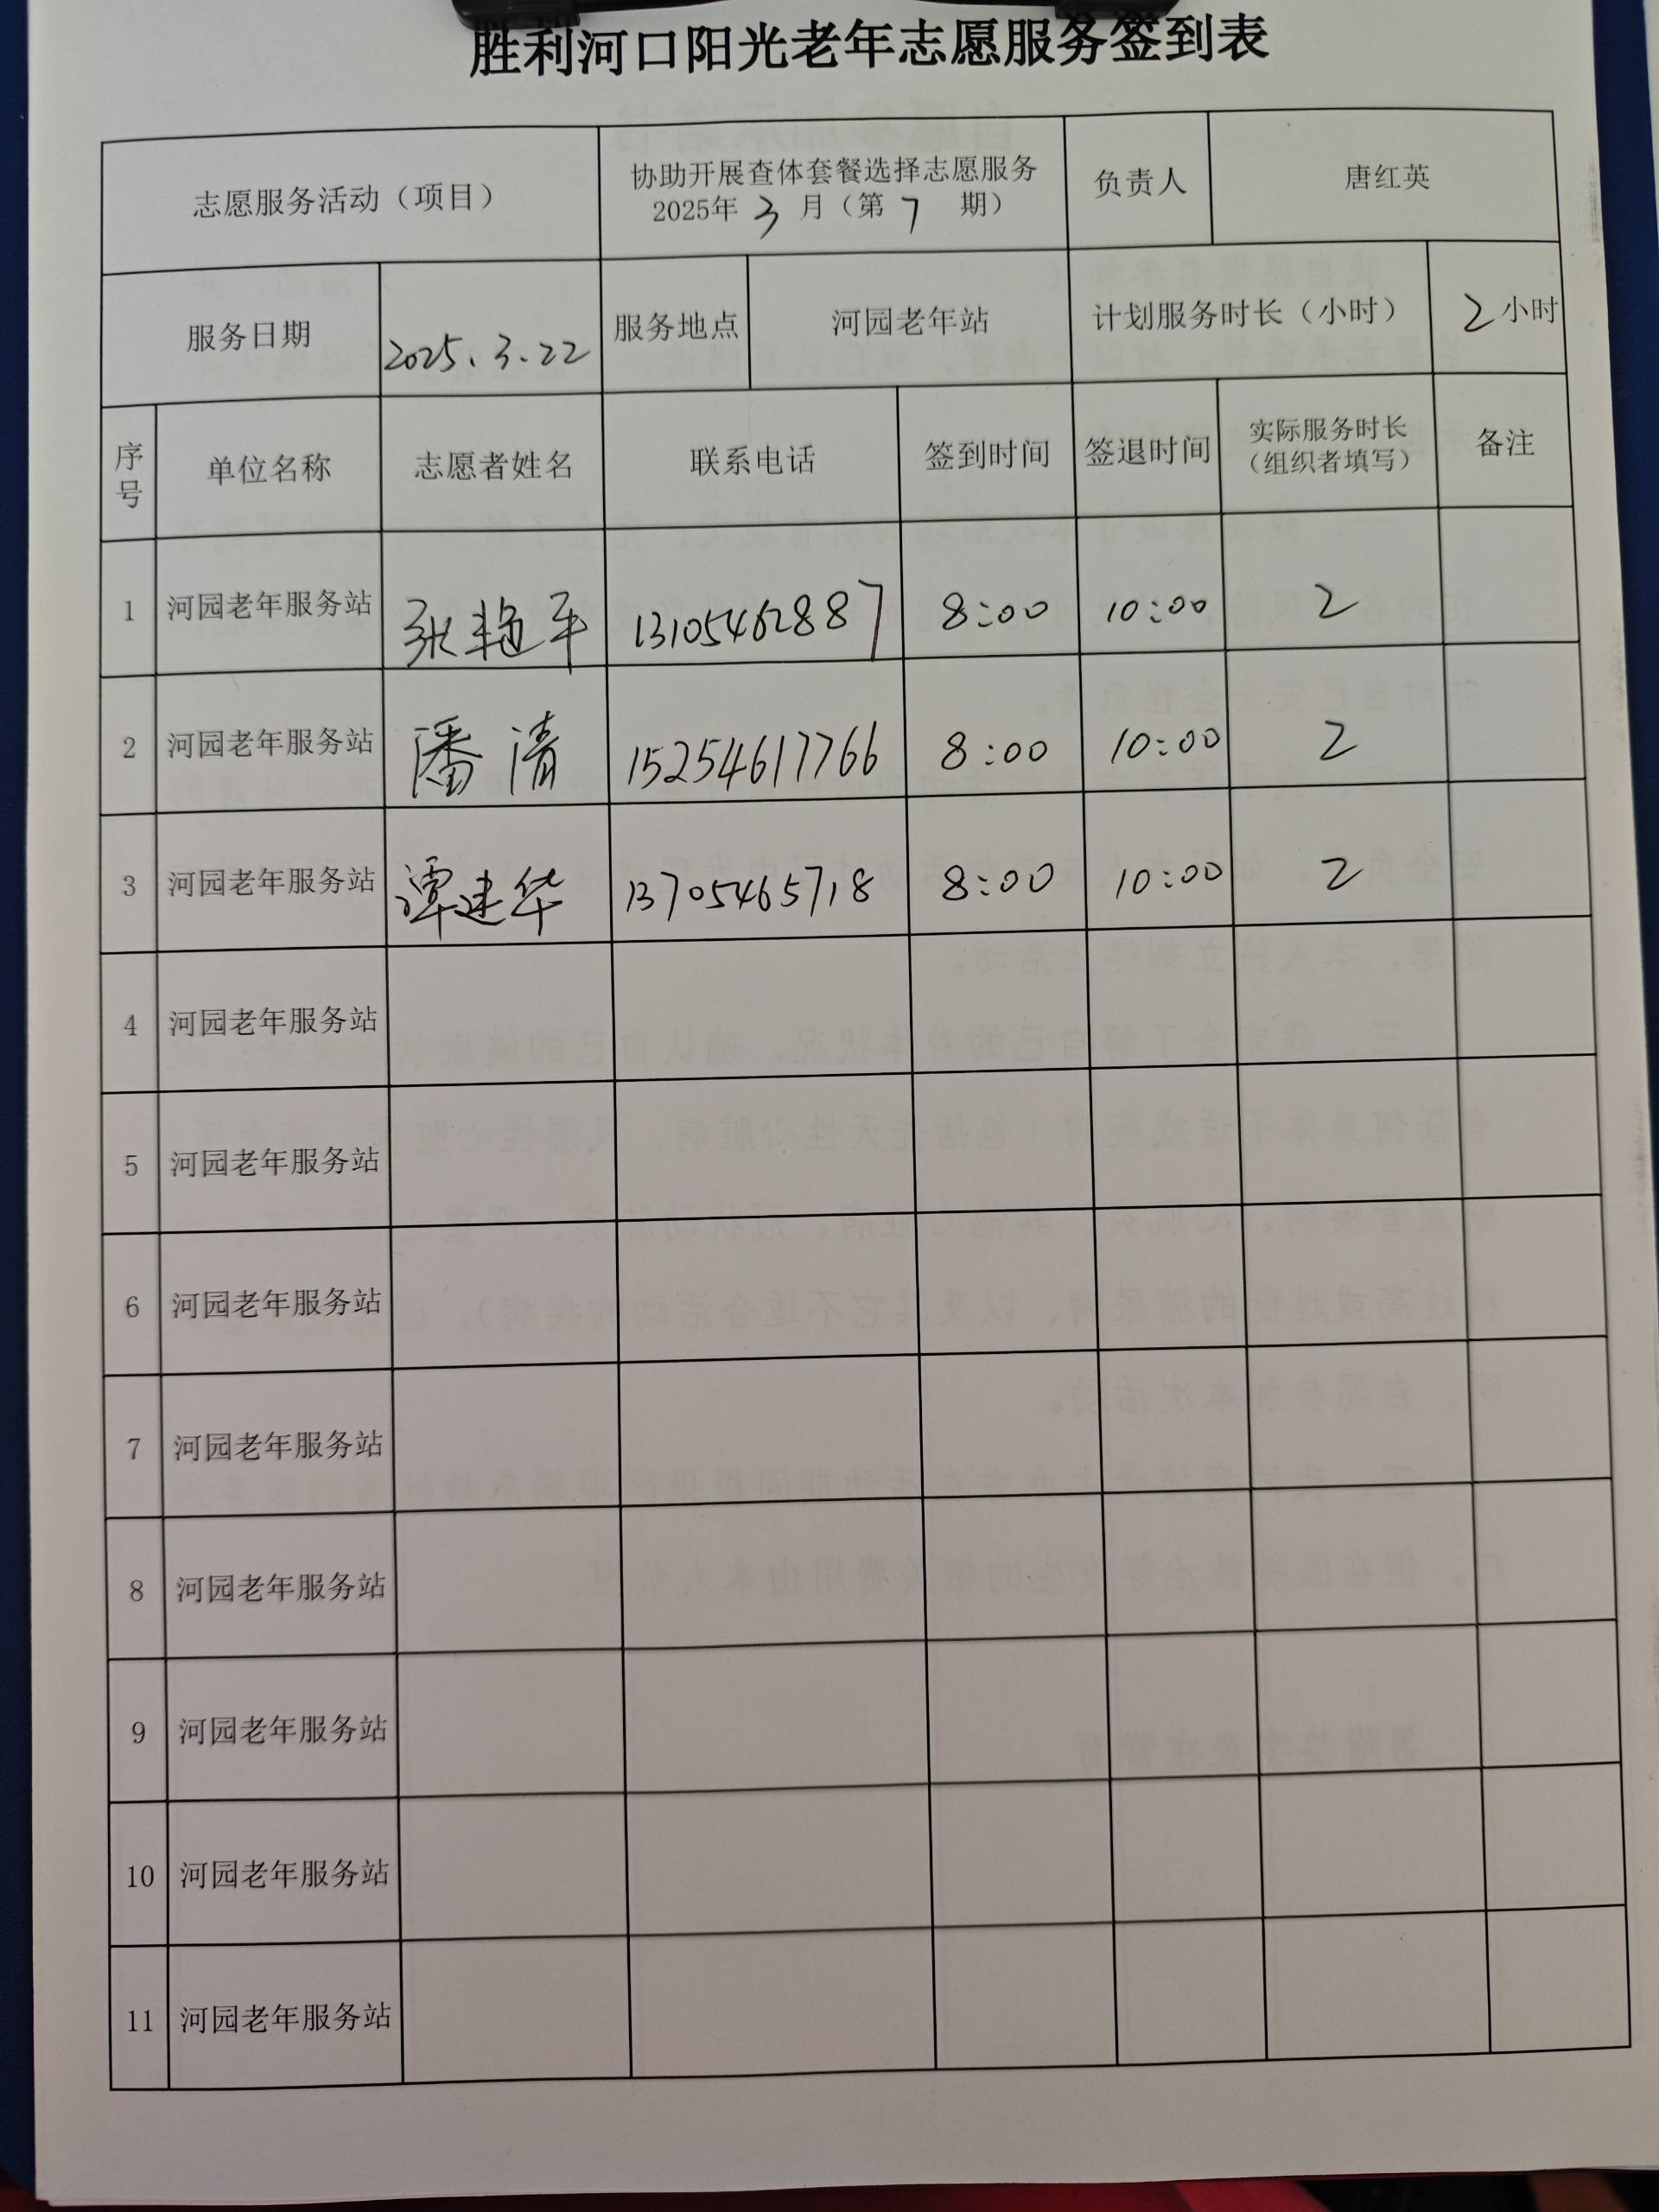 胜利河口阳光老年志愿服务签到表
志愿服务活动（项目） 协助开展查体套餐选择志愿服务 2025年 3 月（第 7 期） 负责人 唐红英
服务日期 2025.3.22 服务地点 河园老年站 计划服务时长（小时） 2小时
序号 单位名称 志愿者姓名 联系电话 签到时间 签退时间 实际服务时长（组织者填写） 备注
1 河园老年服务站 张艳平 13105462887 8:00 10:00 2
2 河园老年服务站 潘清 15254617766 8:00 10:00 2
3 河园老年服务站 谭建华 13705465718 8:00 10:00 2
4 河园老年服务站
5 河园老年服务站
6 河园老年服务站
7 河园老年服务站
8 河园老年服务站
9 河园老年服务站
10 河园老年服务站
11 河园老年服务站